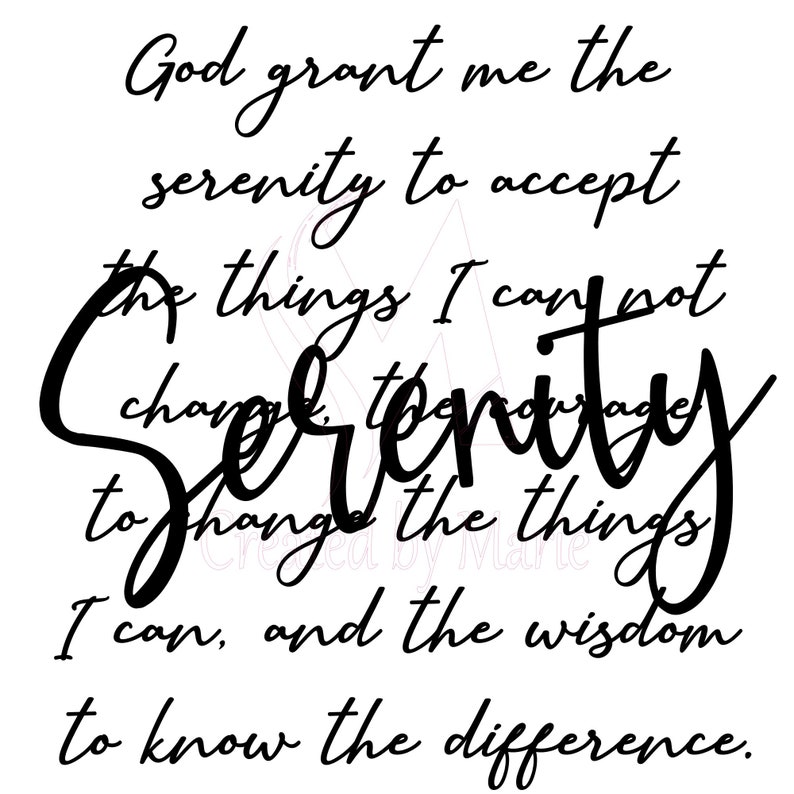 God grant me the
serenity to accept
the things I can not
Serenity
change, the courage
to change the things
Created by Marie
I can, and the wisdom
to know the difference.